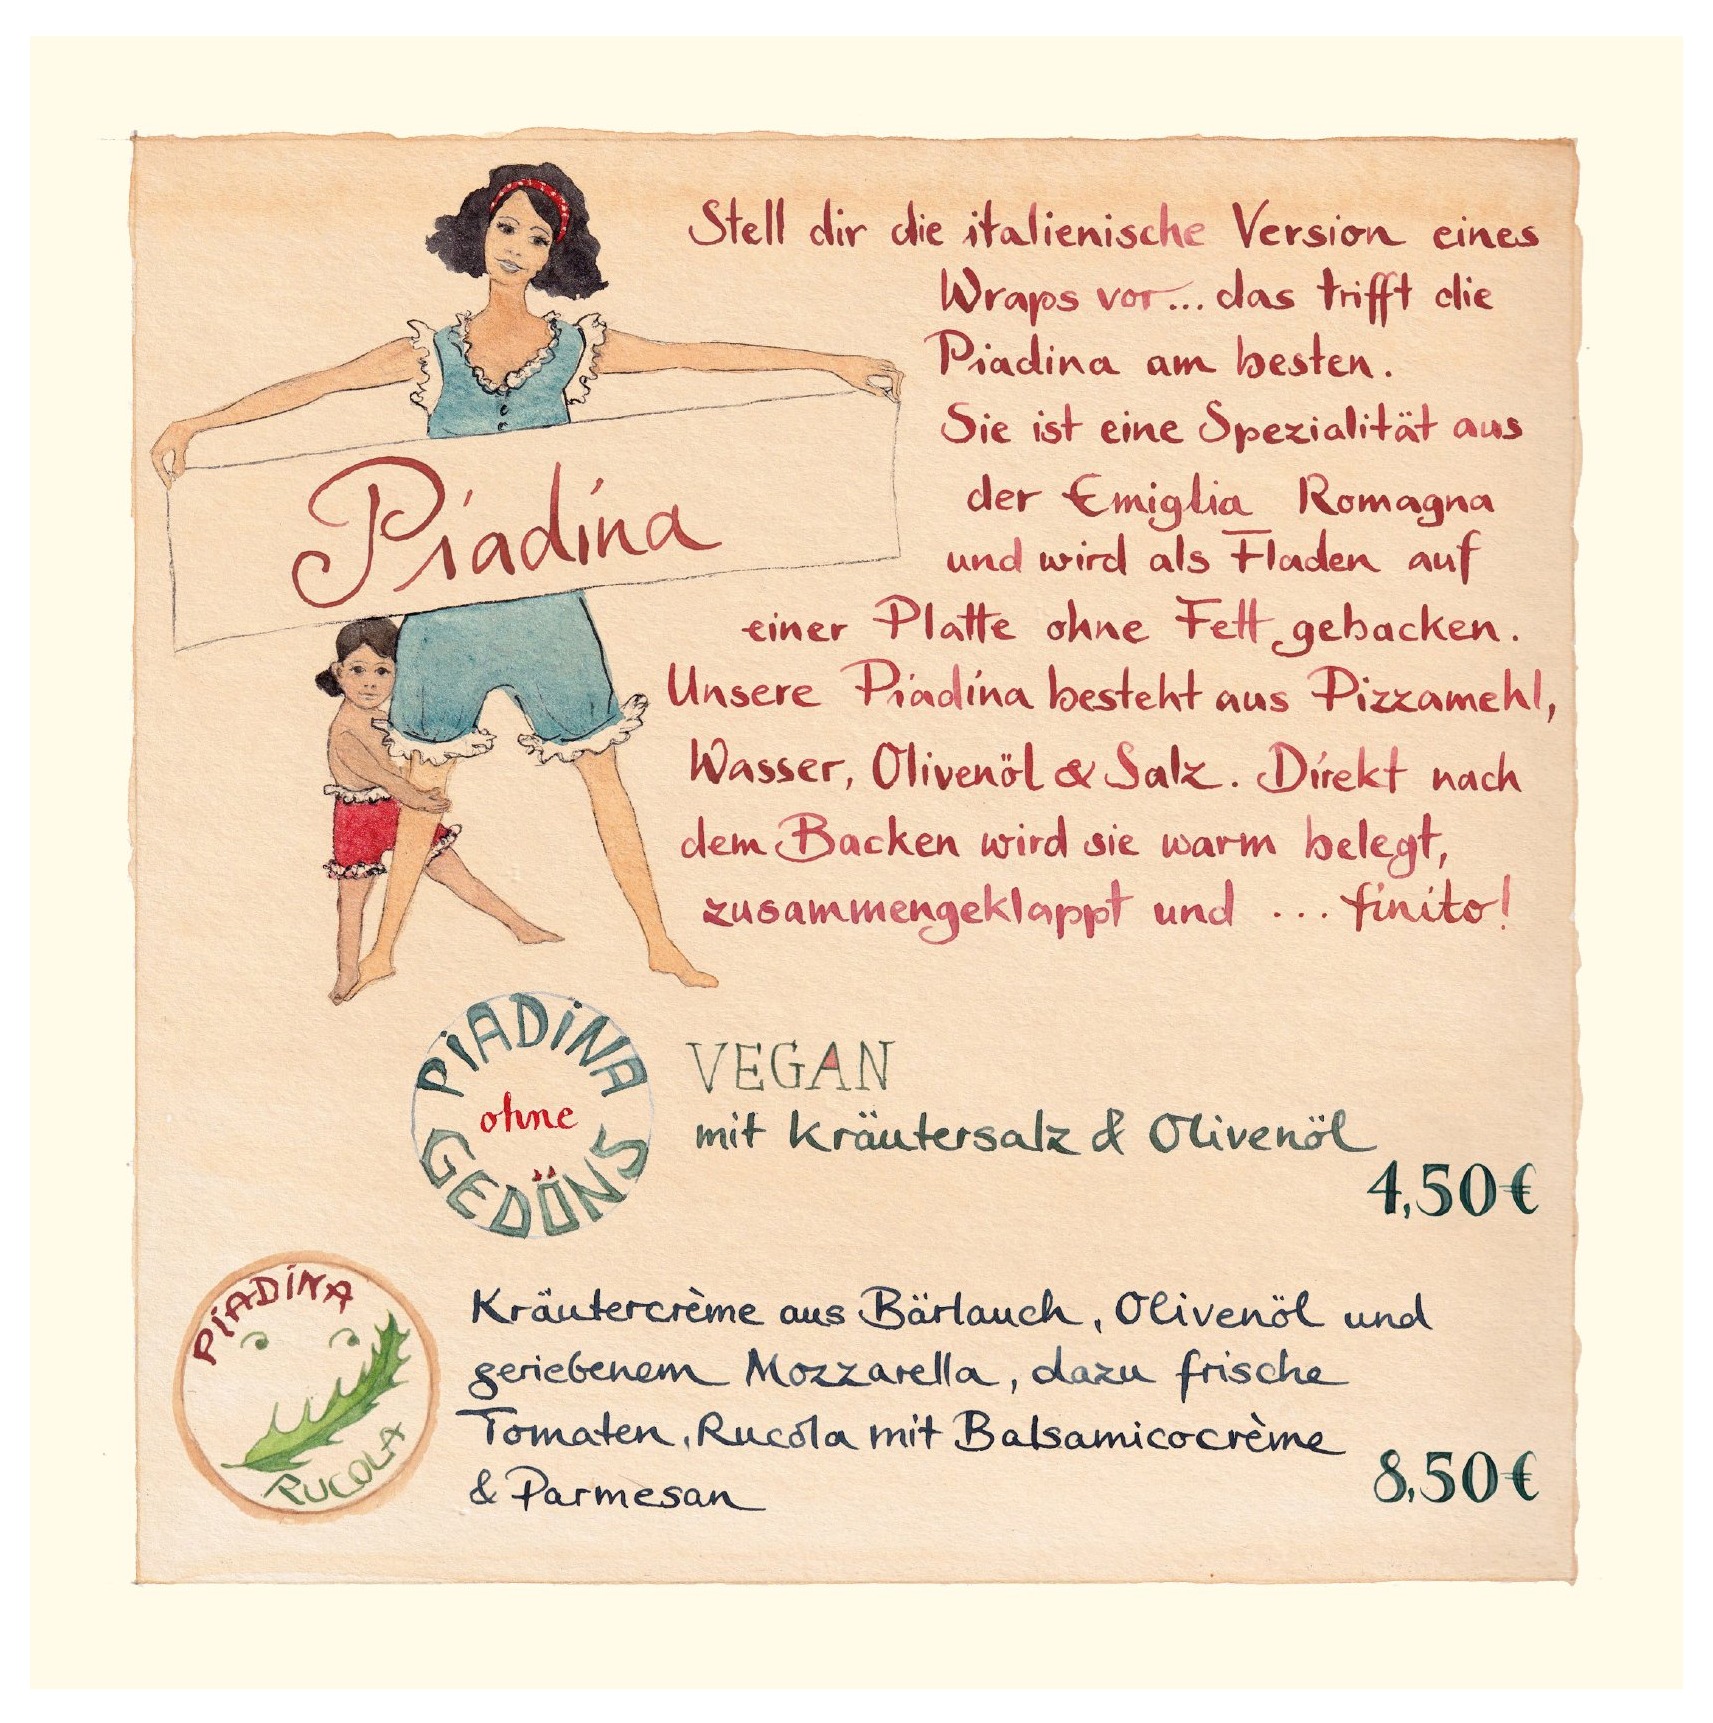 Stell dir die italienische Version eines
Wraps vor... das trifft die
Piadina am besten.
Sie ist eine Spezialität aus
der Emiglia Romagna
und wird als Fladen auf
einer Platte ohne Fett gebacken.
Unsere Piadina besteht aus Pizzamehl,
Wasser, Olivenöl & Salz. Direkt nach
dem Backen wird sie warm belegt,
zusammengeklappt und ... finito!
Piadina
PIADINA
ohne
GEDÖNS
VEGAN
mit Kräutersalz & Olivenöl
4,50€
PIADINA
RUCOLA
Kräutercrème aus Bärlauch, Olivenöl und
geriebenem Mozzarella, dazu frische
Tomaten, Rucola mit Balsamicocrème
& Parmesan
8,50€